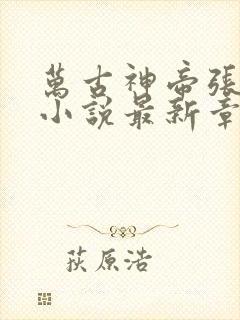 萬古神帝張
小說最新章
荻原浩